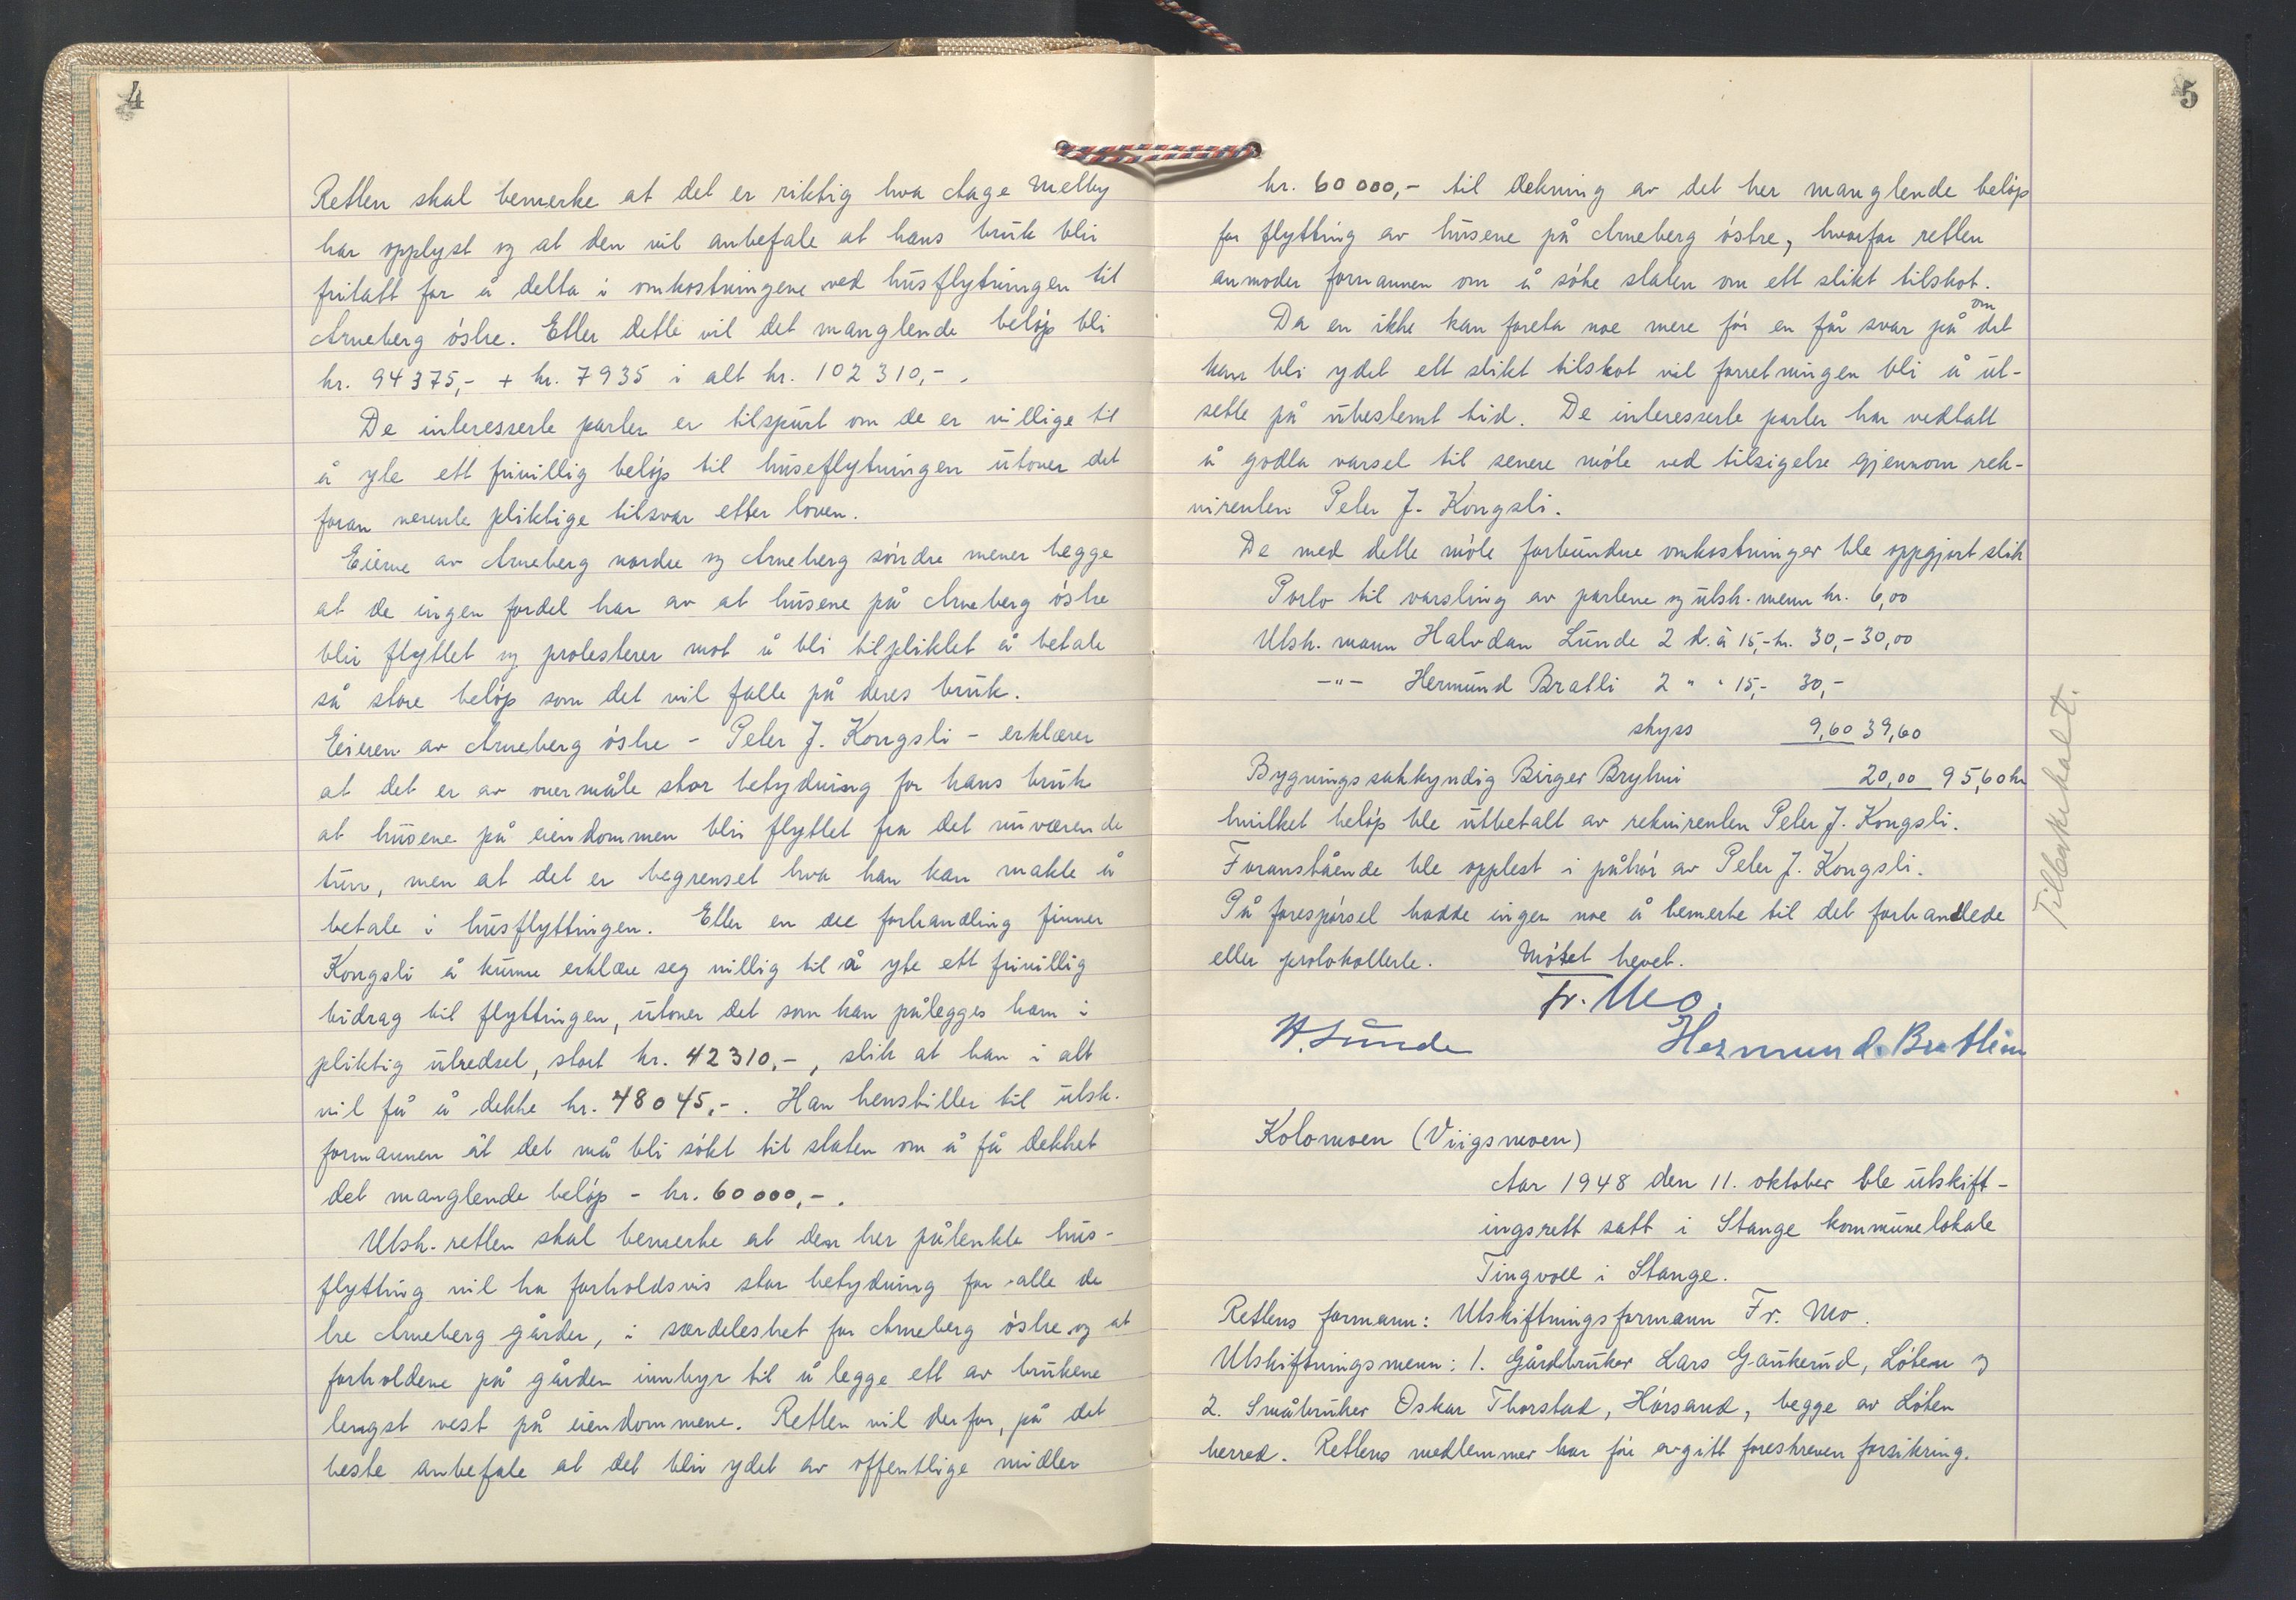 4
Retten skal bemerke at det er riktig hva Aage Melby
har opplyst og at den vil anbefale at hans bruk blir
fritatt for å delta i omkostningene ved husflytningen til
Arneberg østre. Etter dette vil det manglende beløp bli
kr. 94375,- + kr. 7935 i alt kr. 102310,-.
De interesserte parter er tilspurt om de er villige til
å yte ett frivillig beløp til huseflytningen utover det
foran nevente pliktige tilsvar etter loven.
Eierne av Arneberg nordre og Arneberg søndre mener begge
at de ingen fordel har av at husene på Arneberg østre
blir flyttet og protesterer mot å bli tilpliktet å betale
så store beløp som det vil falle på deres bruk.
Eieren av Arneberg østre - Peter J. Kongsli - erklærer
at det er av overmåte stor betydning for hans bruk
at husene på eiendommen blir flyttet fra det nuværende
tun, men at det er begrenset hva han kan makte å
betale i husflyttingen. Etter en del forhandling finner
Kongsli å kunne erklære seg villig til å yte ett frivillig
bidrag til flyttingen, utover det som kan pålegges ham i
pliktig utredsel, stort kr. 42310,-, slik at han i alt
vil få å dekke kr. 48045,-. Han henstiller til utsk.
formannen åt det må bli søkt til staten om å få dekket
det manglende beløp - kr. 60000,-.
Utsk. retten skal bemerke at den her påtenkte hus-
flytting vil ha forholdsvis stor betydning for alle de
tre Arneberg gårder, i særdeleshet for Arneberg østre og at
forholdene på gården innbyr til å legge ett av brukene
lengst vest på eiendommene. Retten vil derfor, på det
beste anbefale at det blir ydet av offentlige midler
5
kr. 60000,- til dekning av det her manglende beløp
for flytting av husene på Arneberg østre, hvorfor retten
anmoder formannen om å søke staten om ett slikt tilskot.
Da en ikke kan foreta noe mere før en får svar på om det
kan bli ydet ett slikt tilskot vil forretningen bli å ut-
sette på ubestemt tid. De interesserte parter har vedtatt
å godta varsel til senere møte ved tilsigelse gjennom rek-
virenten Peter J. Kongsli.
De med dette møte forbundne omkostninger ble oppgjort slik
Porto til varsling av partene og utsk. menn kr. 6,00
Utsk. mann Halvdan Lunde 2 d. à 15,- kr. 30,- 30,00
-"- Hermund Bratli 2 " " 15,- 30,-
skyss 9,60 39,60
Bygningssakkyndig Birger Bryhni 20,00 95,60 kr
hvilket beløp ble utbetalt av rekvirenten Peter J. Kongsli.
Foranstående ble opplest i påhør av Peter J. Kongsli.
På forespørsel hadde ingen noe å bemerke til det forhandlede
eller protokollerte. Møtet hevet.
Fr. Mo.
H. Lunde Hermund. Bratlien
Tilbakekalt.
Kolomoen (Viigsmoen)
Aar 1948 den 11. oktober ble utskift-
ingsrett satt i Stange kommunelokale
Tingvoll i Stange.
Rettens formann: Utskiftningsformann Fr. Mo.
Utskiftningsmenn: 1. Gårdbruker Lars Gaukerud, Løten og
2. Småbruker Oskar Thorstad, Hørsand, begge av Løten
herred. Rettens medlemmer har før avgitt foreskreven forsikring.